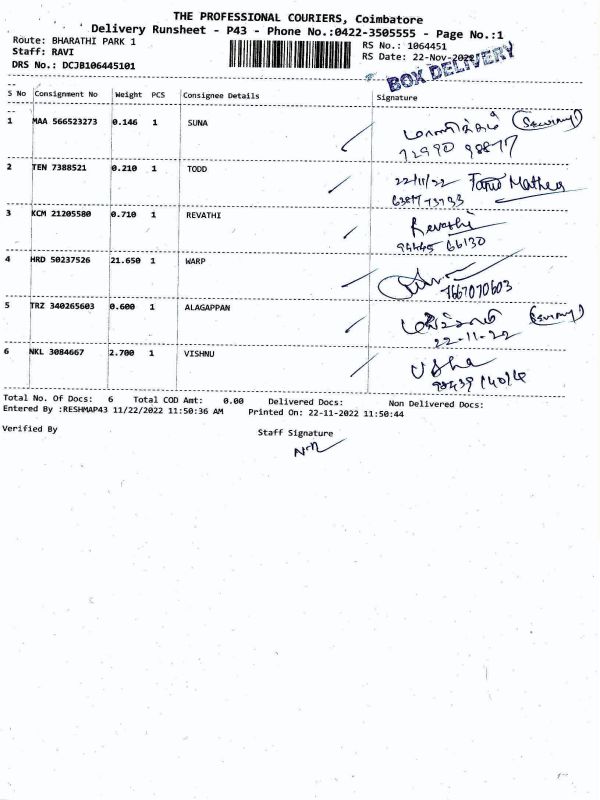 THE PROFESSIONAL COURIERS, Coimbatore
Delivery Runsheet - P43 - Phone No.:0422-3505555 - Page No.:1
Route: BHARATHI PARK 1
Staff: RAVI
DRS No.: DCJB106445101
RS No.: 1064451
RS Date: 22-Nov-2022
BOX DELIVERY
S No Consignment No Weight PCS Consignee Details Signature
1 MAA 566523273 0.146 1 SUNA
72990 98877
2 TEN 7388521 0.210 1 TODD 22/11/22
3 KCM 21205580 0.710 1 REVATHI Revathi
94445 66130
4 HRD 50237526 21.650 1 WARP
7667070603
5 TRZ 340265603 0.600 1 ALAGAPPAN
22-11-22
6 NKL 3084667 2.700 1 VISHNU Usha
Total No. Of Docs: 6 Total COD Amt: 0.00 Delivered Docs: Non Delivered Docs:
Entered By :RESHMAP43 11/22/2022 11:50:36 AM Printed On: 22-11-2022 11:50:44
Verified By Staff Signature